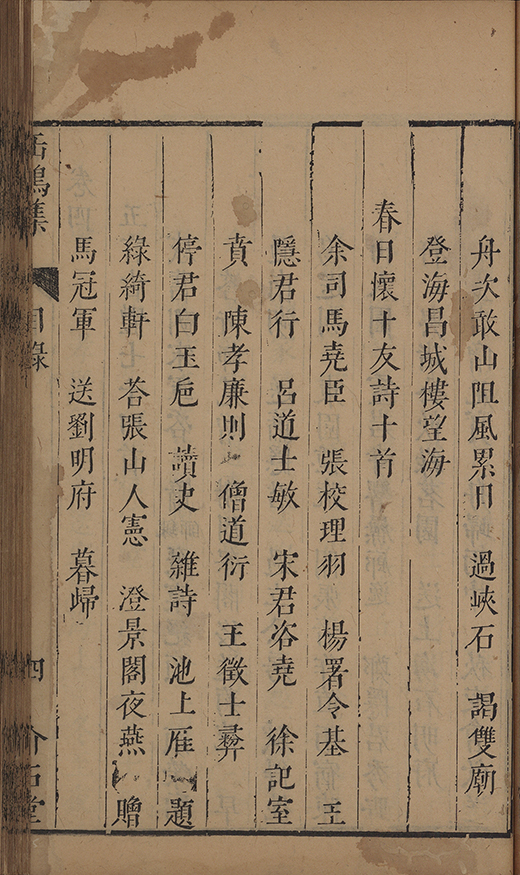 舟次敢山阻風累日　過峽石　謁雙廟
登海昌城樓望海
春日懷十友詩十首
余司馬堯臣　張校理羽　楊署令基　王
隱君行　呂道士敏　宋君咨堯　徐記室
賁　陳孝廉則　僧道衍　王徵士彝
停君白玉卮　讀史　雜詩　池上雁　題
綠綺軒　荅張山人憲　澄景閣夜燕　贈
馬冠軍　送劉明府　暮歸
鳴集　目錄　四　介石堂